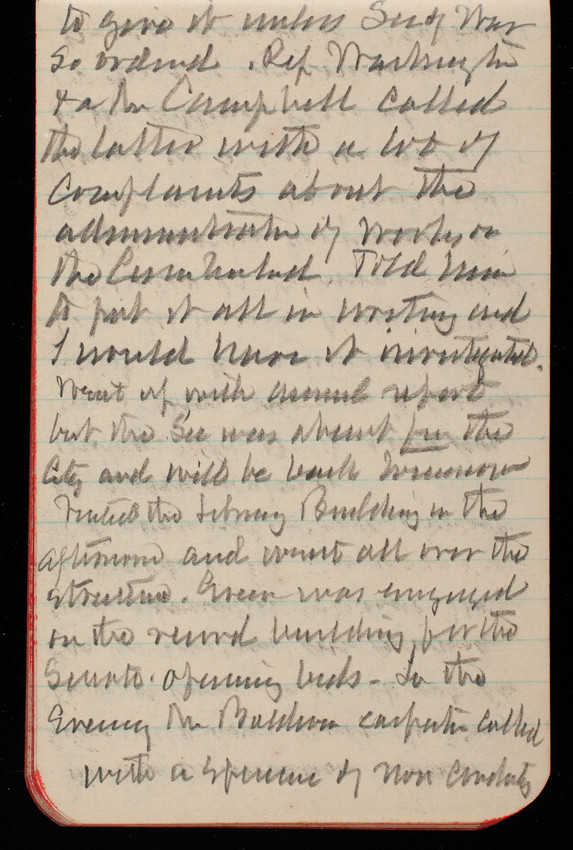 to give it unless Sec of War
so ordered. Rep Washington
& a Mr Campbell called
the latter with a lot of
complaints about the
administration of works on
the Cumberland. Told him
to put it all in writing and
I would have it investigated.
Went up with annual report
but the Sec was absent from the
City and will be back tomorrow
Visited the Library Building in the
afternoon and went all over the
structure. Green was engaged
on the record building for the
Senate. opening beds. In the
Evening Mr Baldwin called
with a specimen of non conducting